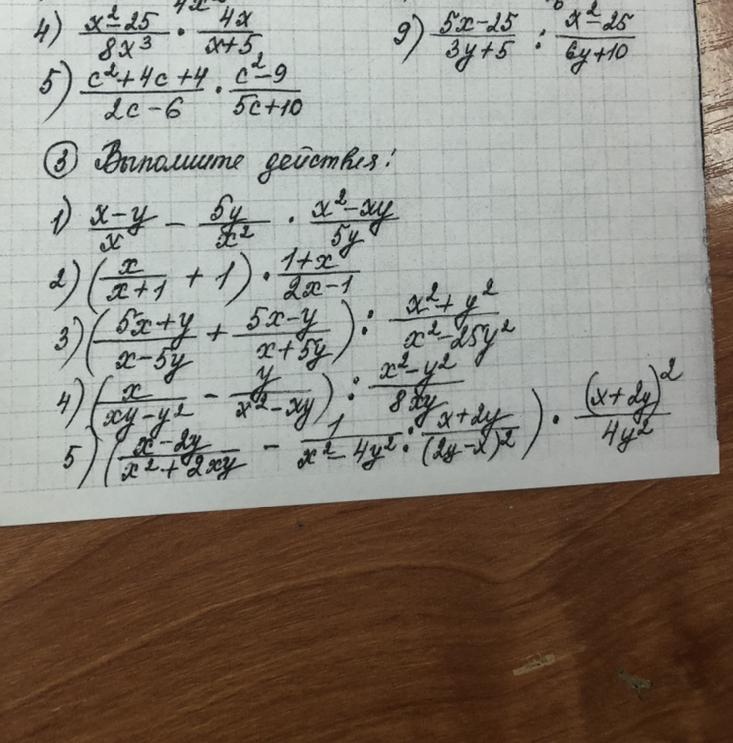 4) (x²-25)/(8x³) · (4x)/(x+5)
9) (5x-25)/(3y+5) : (x²-25)/(6y+10)
5) (c²+4c+4)/(2c-6) · (c²-9)/(5c+10)
③ Выполните действия:
1) (x-y)/x - (5y)/(x²) · (x²-xy)/(5y)
2) (x/(x+1) + 1) · (1+x)/(2x-1)
3) ((5x+y)/(x-5y) + (5x-y)/(x+5y)) : (x²+y²)/(x²-25y²)
4) (x/(xy-y²) - y/(x²-xy)) : (x²-y²)/(8xy)
5) ((x-2y)/(x²+2xy) - 1/(x²-4y²) : (x+2y)/((2y-x)²)) · ((x+2y)²)/(4y²)